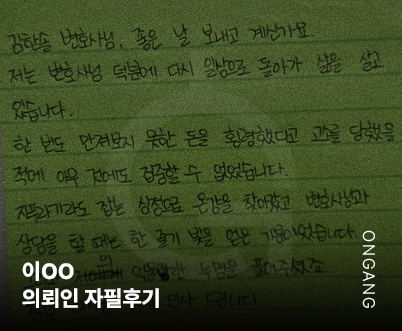 김한솔 변호사님, 좋은 날 보내고 계신가요.
저는 변호사님 덕분에 다시 일상으로 돌아가 삶을 살고
있습니다.
한 번도 만져보지 못한 돈을 횡령했다고 고소를 당했을
적에 아무 것에도 집중할 수 없었습니다.
지푸라기라도 잡는 심정으로 온강을 찾아갔고 변호사님과
상담을 할 때는 한 줄기 빛을 얻은 기분이었습니다.
억울한 누명을 풀어주셨죠
감사 드립니다
이OO
의뢰인 자필후기
ONGANG